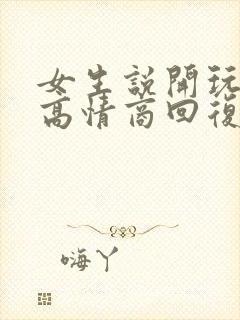 女生說開玩
高情商回復
嗨丫